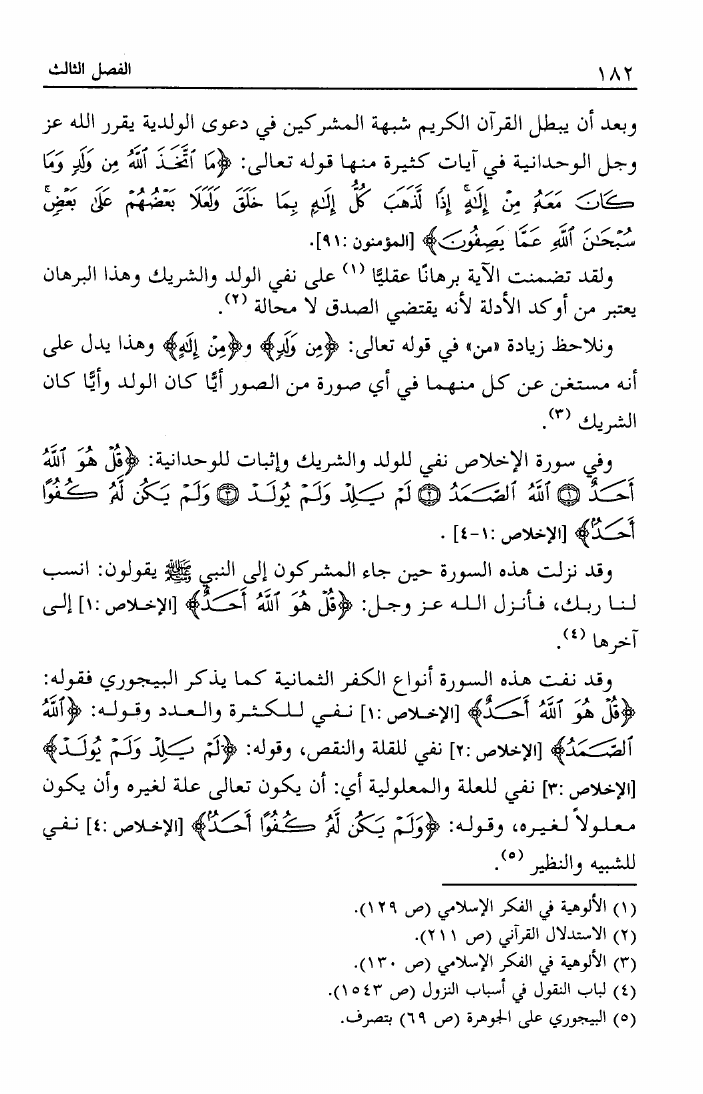 ١٨٢ الفصل الثالث
وبعد أن يبطل القرآن الكريم شبهة المشركين في دعوى الولدية يقرر الله عز
وجل الوحدانية في آيات كثيرة منها قوله تعالى: ﴿مَا ٱتَّخَذَ ٱللَّهُ مِن وَلَدٍ وَمَا
كَانَ مَعَهُۥ مِنْ إِلَٰهٍ ۚ إِذًا لَّذَهَبَ كُلُّ إِلَٰهٍۭ بِمَا خَلَقَ وَلَعَلَا بَعْضُهُمْ عَلَىٰ بَعْضٍ ۚ
سُبْحَٰنَ ٱللَّهِ عَمَّا يَصِفُونَ﴾ [المؤمنون :٩١].
ولقد تضمنت الآية برهانًا عقليًّا (١) على نفي الولد والشريك وهذا البرهان
يعتبر من أوكد الأدلة لأنه يقتضي الصدق لا محالة (٢).
ونلاحظ زيادة «من» في قوله تعالى: ﴿مِن وَلَدٍ﴾ و﴿مِنْ إِلَٰهٍ﴾ وهذا يدل على
أنه مستغن عن كل منهما في أي صورة من الصور أيًّا كان الولد وأيًّا كان
الشريك (٣).
وفي سورة الإخلاص نفي للولد والشريك وإثبات للوحدانية: ﴿قُلْ هُوَ ٱللَّهُ
أَحَدٌ ۝١ ٱللَّهُ ٱلصَّمَدُ ۝٢ لَمْ يَلِدْ وَلَمْ يُولَدْ ۝٣ وَلَمْ يَكُن لَّهُۥ كُفُوًا
أَحَدٌۢ﴾ [الإخلاص :١-٤] .
وقد نزلت هذه السورة حين جاء المشركون إلى النبي ﷺ يقولون: انسب
لنا ربك، فأنزل الله عز وجل: ﴿قُلْ هُوَ ٱللَّهُ أَحَدٌ﴾ [الإخلاص :١] إلى
آخرها (٤).
وقد نفت هذه السورة أنواع الكفر الثمانية كما يذكر البيجوري فقوله:
﴿قُلْ هُوَ ٱللَّهُ أَحَدٌ﴾ [الإخلاص :١] نفي للكثرة والعدد وقوله: ﴿ٱللَّهُ
ٱلصَّمَدُ﴾ [الإخلاص :٢] نفي للقلة والنقص، وقوله: ﴿لَمْ يَلِدْ وَلَمْ يُولَدْ﴾
[الإخلاص :٣] نفي للعلة والمعلولية أي: أن يكون تعالى علة لغيره وأن يكون
معلولاً لغيره، وقوله: ﴿وَلَمْ يَكُن لَّهُۥ كُفُوًا أَحَدٌۢ﴾ [الإخلاص :٤] نفي
للشبيه والنظير (٥).
(١) الألوهية في الفكر الإسلامي (ص ١٢٩).
(٢) الاستدلال القرآني (ص ٢١١).
(٣) الألوهية في الفكر الإسلامي (ص ١٣٠).
(٤) لباب النقول في أسباب النزول (ص ١٥٤٣).
(٥) البيجوري على الجوهرة (ص ٦٩) بتصرف.